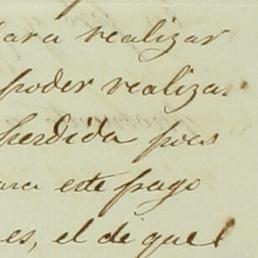 para realizar
poder realizar
perdida pues
para este pago
es, el de que